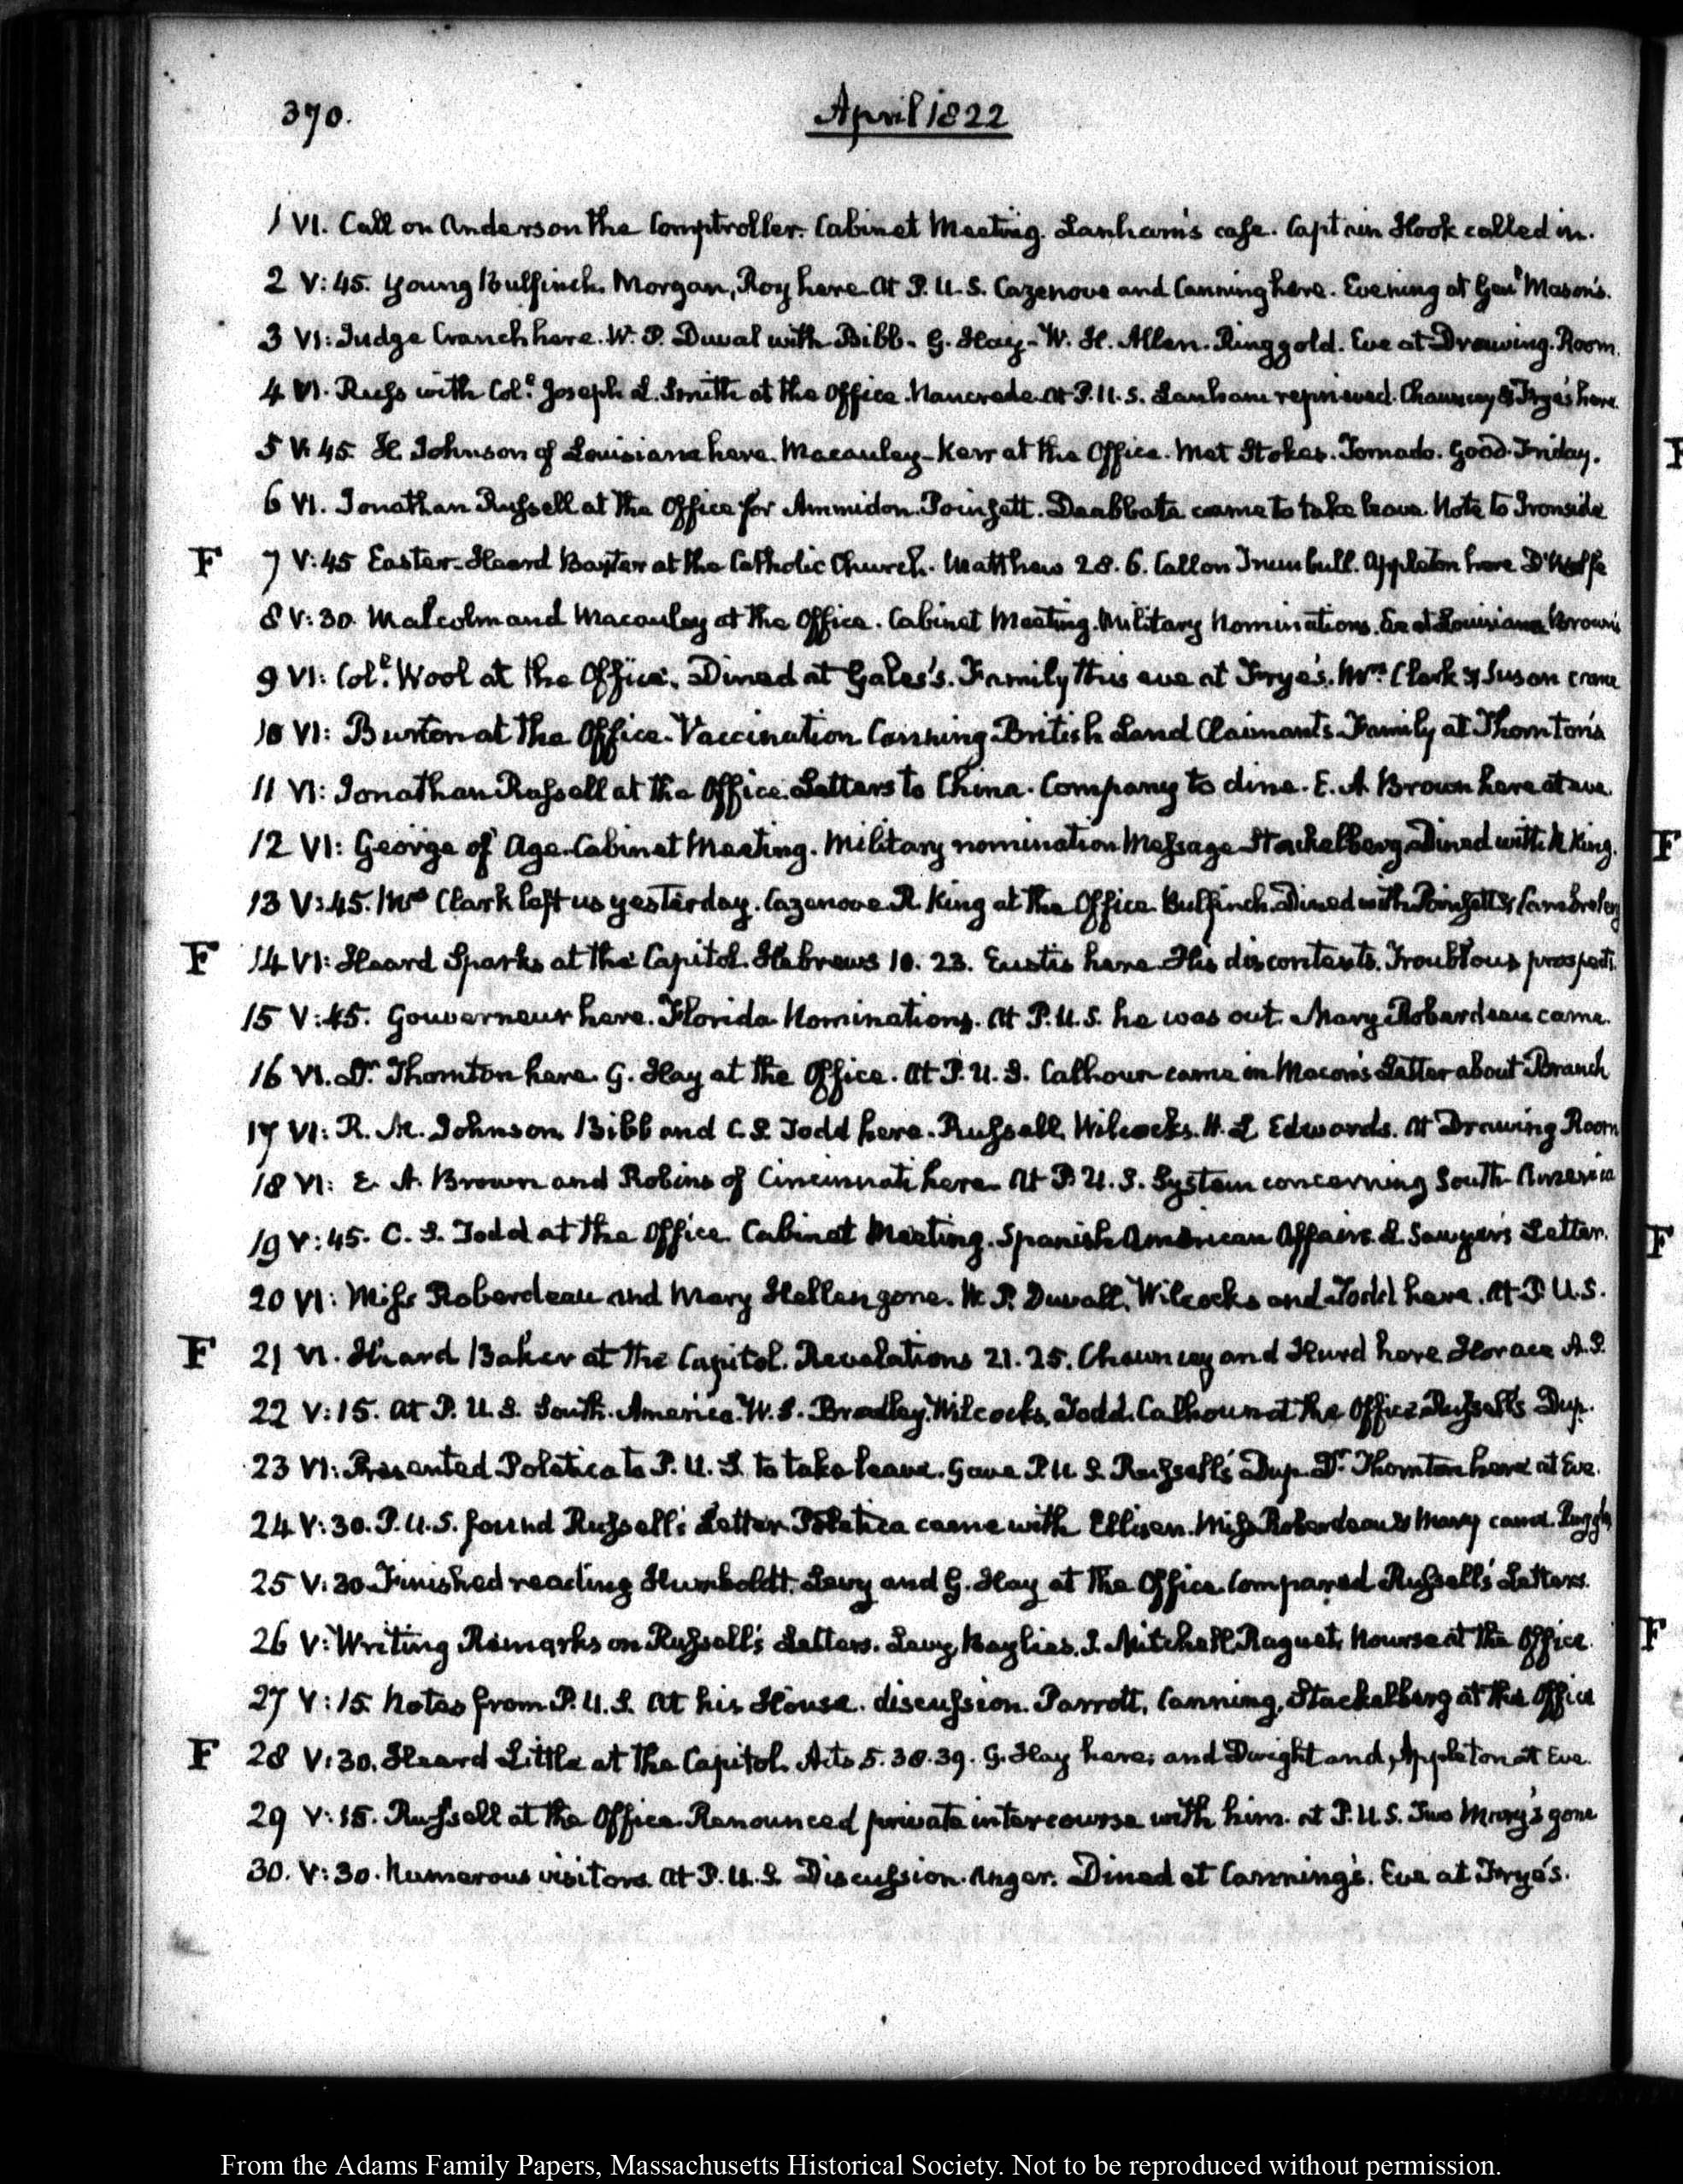 370.
April 1822
1 VI. Call on Anderson the Comptroller. Cabinet Meeting. Lanham's case. Captain Hook called in.
2 V:45. Young Bulfinch. Morgan, Roy here. At P.U.S. Cazenove and Canning here. Evening at Genl. Mason's.
3 VI: Judge Cranch here. W. P. Duval with Bibb. G. Hay. W. H. Allen. Ringgold. Eve at Drawing-Room.
4 VI. with Coll. Joseph L. Smith at the Office. Nancrede. At P.U.S. Lanham reprieved. Chauncey & Frye's here.
5 V:45. H. Johnson of Louisiana here. Macauley-Kerr at the Office. Met Stokes. Tornado. Good-Friday.
6 VI. Jonathan Russell at the Office for Ammidon. Poinsett. Deabbate came to take leave. Note to Ironside
F 7 V:45 Easter. Heard Baxter at the Catholic Church. Matthew 28.6. Call on Trumbull. Appleton here D'Wolfe
8 V:30. Malcolm and Macauley at the Office. Cabinet Meeting. Military Nominations. Eve at Louisiana Brown's
9 VI: Coll. Wool at the Office. Dined at Gales's. Family this eve at Frye's. Mrs. Clark & Suson crane
10 VI: Burton at the Office. Vaccination. Canning. British Land Claimants. Family at Thornton's
11 VI: Jonathan Russell at the Office. Letters to China. Company to dine. E. A. Brown here at eve.
12 VI: George of Age. Cabinet Meeting. Military nomination Message. Stackelberg. Dined with R King.
13 V:45. Mrs Clark left us yesterday. Cazenove. R. King at the Office. Bulfinch. Dined with Poinsett & Cambreleng
F 14 VI: Heard Sparks at the Capitol. Hebrews 10. 23. Eustis here. His discontents. Troublous prospects.
15 V:45. Gouverneur here. Florida Nominations. At P.U.S. he was out. Mary Roberdeau came.
16 VI. Dr. Thornton here. G. Hay at the Office. At P.U.S. Calhoun came in. Macon's Letter about Branch
17 VI: R. M. Johnson, Bibb and C. S. Todd here. Russell, Wilcocks. H. L. Edwards. At Drawing Room
18 VI: E. A. Brown and Robins of Cincinnati here. At P.U.S. System concerning South-America
19 V:45. C. S. Todd at the Office. Cabinet Meeting. Spanish American Affairs. L. Sawyer's Letter.
20 VI: Miss Roberdeau and Mary Hellen gone. W. P. Duvall, Wilcocks and Todd here. At P.U.S.
F 21 VI. Heard Baker at the Capitol. Revelations 21. 25. Chauncey and Hurd here. Horace A.S.
22 V:15. At P.U.S. South-America. W. S. Bradley, Wilcocks, Todd. Calhoun at the Office. Russell's Dup.
23 VI: Presented Poletica to P.U.S. to take leave. Gave P.U.S. Russell's Dup. Dr. Thornton here at Eve.
24 V:30. P.U.S. found Russell's Letter. Poletica came with Ellisen. Miss Roberdeau & Mary came.
25 V:30. Finished reading Humboldt. Levy and G. Hay at the Office. Compared Russell's Letters.
26 V: Writing Remarks on Russell's Letters. Levy, Baylies. J. Mitchell, Raguet, Nourse at the Office.
27 V:15. Notes from P.U.S. At his House. discussion. Parrott, Canning, Stackelberg at the Office
F 28 V:30. Heard Little at the Capitol. Acts 5. 38.39. G. Hay here; and Dwight and Appleton at Eve.
29 V:15. Russell at the Office. Renounced private intercourse with him. at P.U.S. Two Mary's gone
30. V:30. Numerous visitors. At P.U.S. Discussion. Anger. Dined at Canning's. Eve at Frye's.
From the Adams Family Papers, Massachusetts Historical Society. Not to be reproduced without permission.